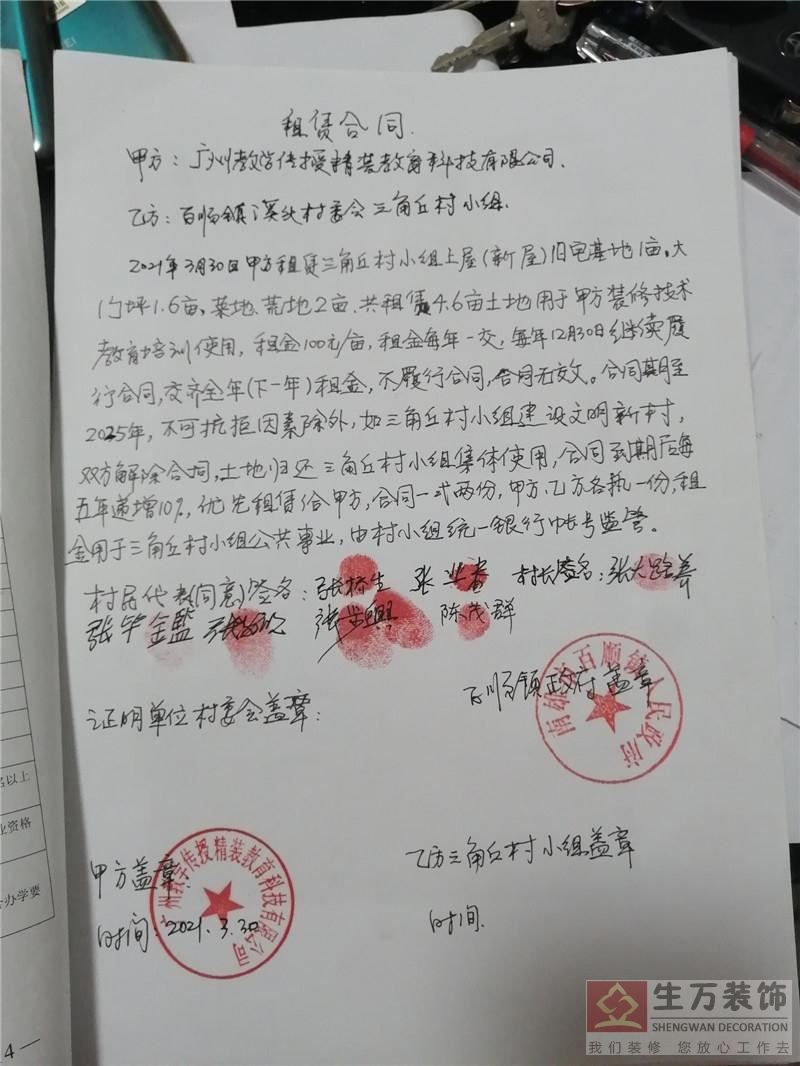 租赁合同.
甲方：广州教学传授精装教育科技有限公司.
乙方：百顺镇溪头村委会三角丘村小组.
2021年3月30日甲方租赁三角丘村小组上屋(新屋)旧宅基地1亩。大
门坪1.6亩,菜地、荒地2亩.共租赁4.6亩土地用于甲方装修技术
教育培训使用，租金100元/亩，租金每年一交，每年12月30日继续履
行合同，交齐全年(下一年)租金，不履行合同，合同无效。合同期至
2025年，不可抗拒因素除外，如三角丘村小组建设文明新村，
双方解除合同，土地归还三角丘村小组集体使用，合同到期后每
五年递增10%，优先租赁给甲方，合同一式两份，甲方.乙方各执一份，租
金用于三角丘村小组公共事业，由村小组统一银行帐号监管。
村民代表(同意)签名：张桥生 张 村长签名：张大路养
张 张 陈茂群
百顺镇政府盖章
南雄市百顺镇人民政府
证明单位村委会盖章：
广州教学传授精装教育科技有限公司
甲方盖章：
乙方三角丘村小组盖章
时间：2021.3.30
时间.
名以上
业资格
办学要
4—
生万装饰
SHENGWAN DECORATION
我们装修 您放心工作去